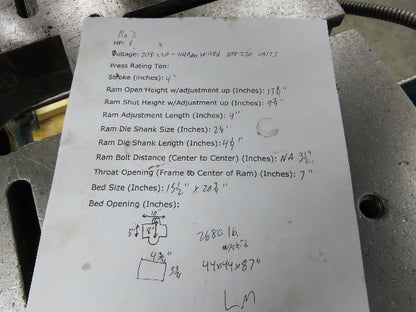 No 3
HP: 3
Voltage: 208-220-440 Wired 208-220 volts
Press Rating Ton:
Stroke (Inches): 4"
Ram Open Height w/adjustment up (Inches): 13 3/4"
Ram Shut Height w/Adjustment up (Inches): 9 3/4"
Ram Adjustment Length (Inches): 4"
Ram Die Shank Size (Inches): 2
Ram Die Shank Length (Inches): 4
Ram Bolt Distance (Center to Center) (Inches): NA
Throat Opening (Frame to Center of Ram) (Inches): 7"
Bed Size (Inches): 15 1/2" x 20 3/4"
Bed Opening (Inches):
10"
5" 8"
2680 lb.
w/skid
4 3/4"
5 3/4
44x44x87"
LM